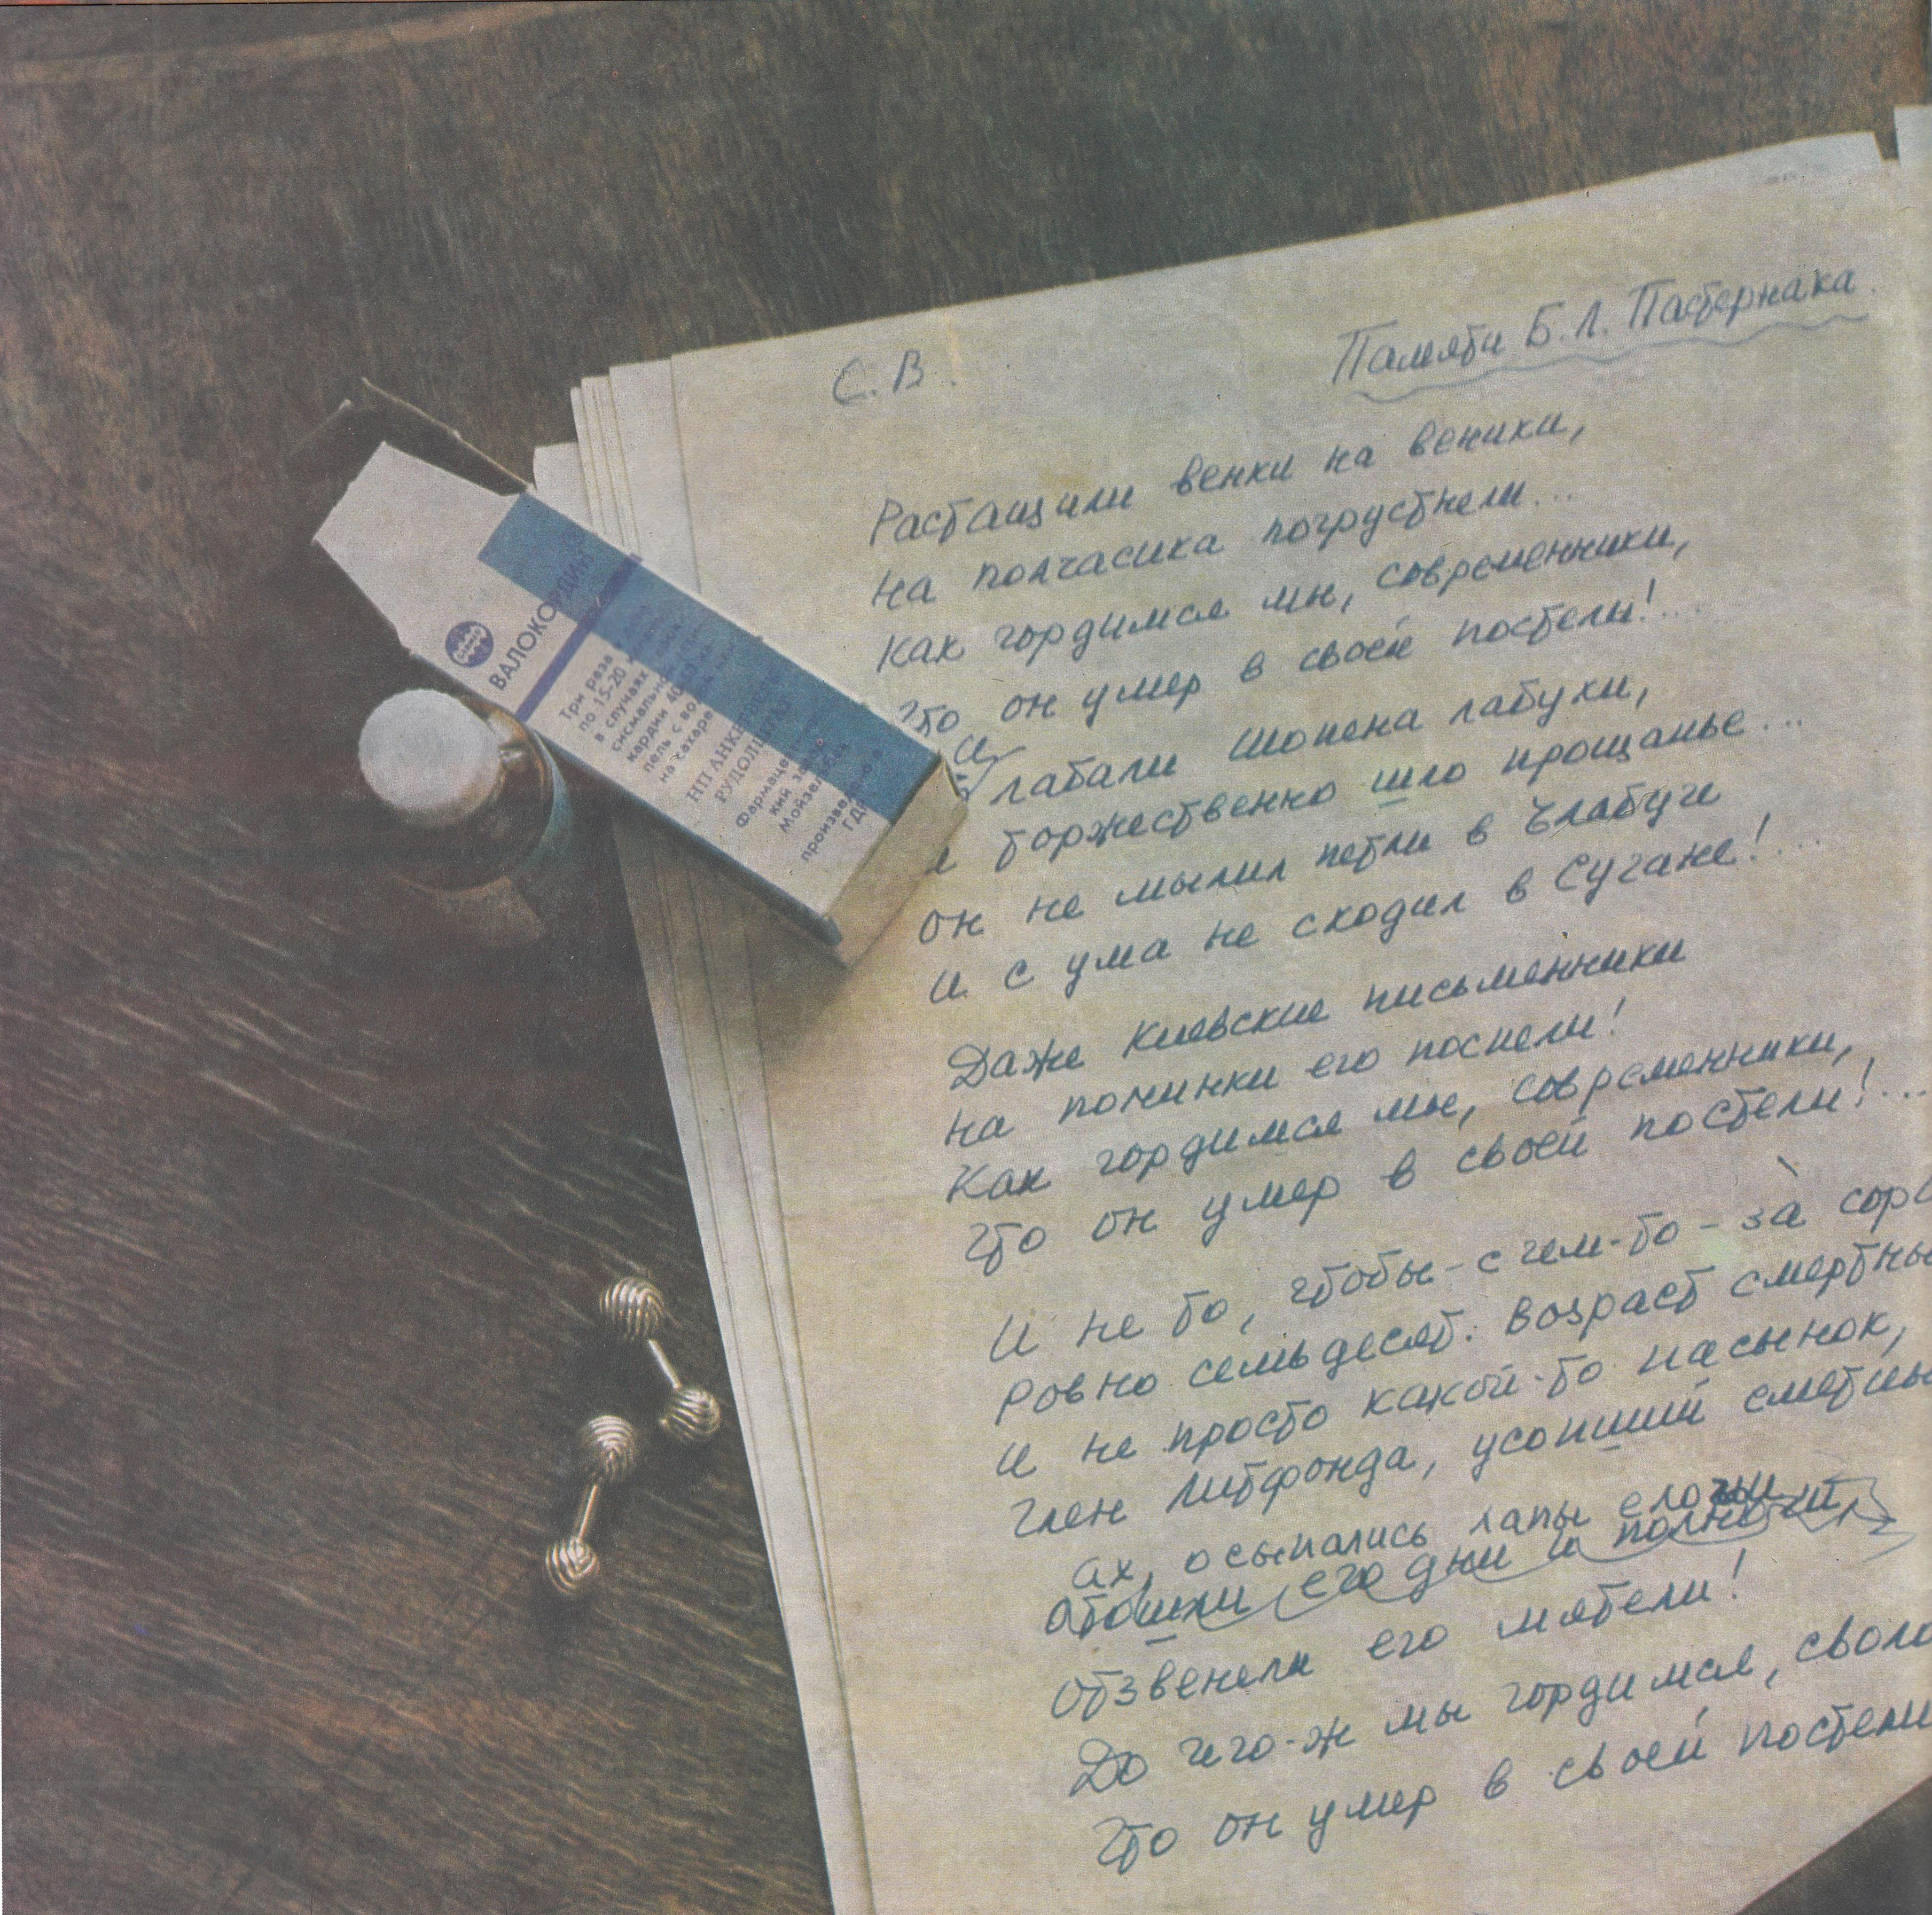 С. В.
Памяти Б. Л. Пастернака.
Растащили венки на веники,
На полчасика погрустнели...
Как гордимся мы, современники,
Что он умер в своей постели!...
И
лабали Шопена лабухи,
И торжественно шло прощанье...
Он не мылил петли в Елабуге
И с ума не сходил в Сучане!...
Даже Киевские письменники
На поминки его поспели!
Как гордимся мы, современники,
Что он умер в своей постели!...
И не то, чтобы - с чем-то - за
Ровно семьдесят. Возраст
И не просто какой-то пасынок,
Член Литфонда, усопший
Ах, осыпались лапы елочьи
Отошли его дни и полночи
Отзвенели его мятели!
До чего-ж мы гордимся,
Что он умер в своей постели
ВАЛОКОРДИН®
Три раза в
по 15-20
в случаях
кардин
на сахаре
НП
РУДОЛ
кий
ГД